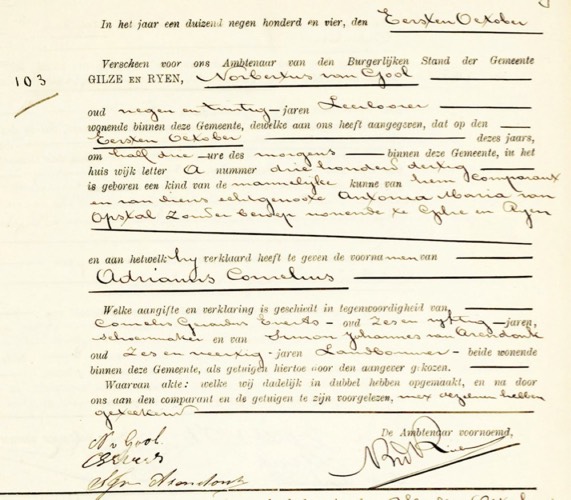 In het jaar een duizend negen honderd en vier, den Eersten October
Verscheen voor ons Ambtenaar van den Burgerlijken Stand der Gemeente
103
GILZE EN RYEN, Norbertus van Gool
oud negen en twintig jaren Leerlooier
wonende binnen deze Gemeente, dewelke aan ons heeft aangegeven, dat op den
Eersten October dezes jaars,
om half drie ure des morgens binnen deze Gemeente, in het
huis wijk letter A nummer drie honderd dertig
is geboren een kind van de mannelijke kunne van hem Comparant
en van diens echtgenoote Antonia Maria van
Opstal Zonder beroep wonende te Gilze en Ryen
en aan hetwelk hij verklaard heeft te geven de voornamen van
Adrianus Cornelius
Welke aangifte en verklaring is geschied in tegenwoordigheid van
Cornelis Gerardus Everts - oud Zes en vijftig - jaren,
Schoenmaker en van Simon Johannes van Arendonk
oud Zes en veertig - jaren Landbouwer - beide wonende
binnen deze Gemeente, als getuigen hiertoe door den aangever gekozen.
Waarvan akte: welke wij dadelijk in dubbel hebben opgemaakt, en na door
ons aan den comparant en de getuigen te zijn voorgelezen, met dezenen hebben
geteekend
De Ambtenaar voornoemd,
N v Gool.
Arendonk